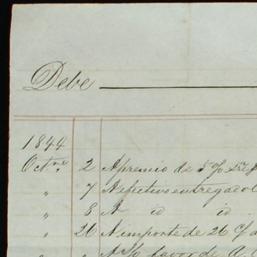 Debe
1844
Oct.re 2 A premio de 5 %
" 7 A efectivo entregado
" 8 A id id
" 20 A importe de 26
" A favor de